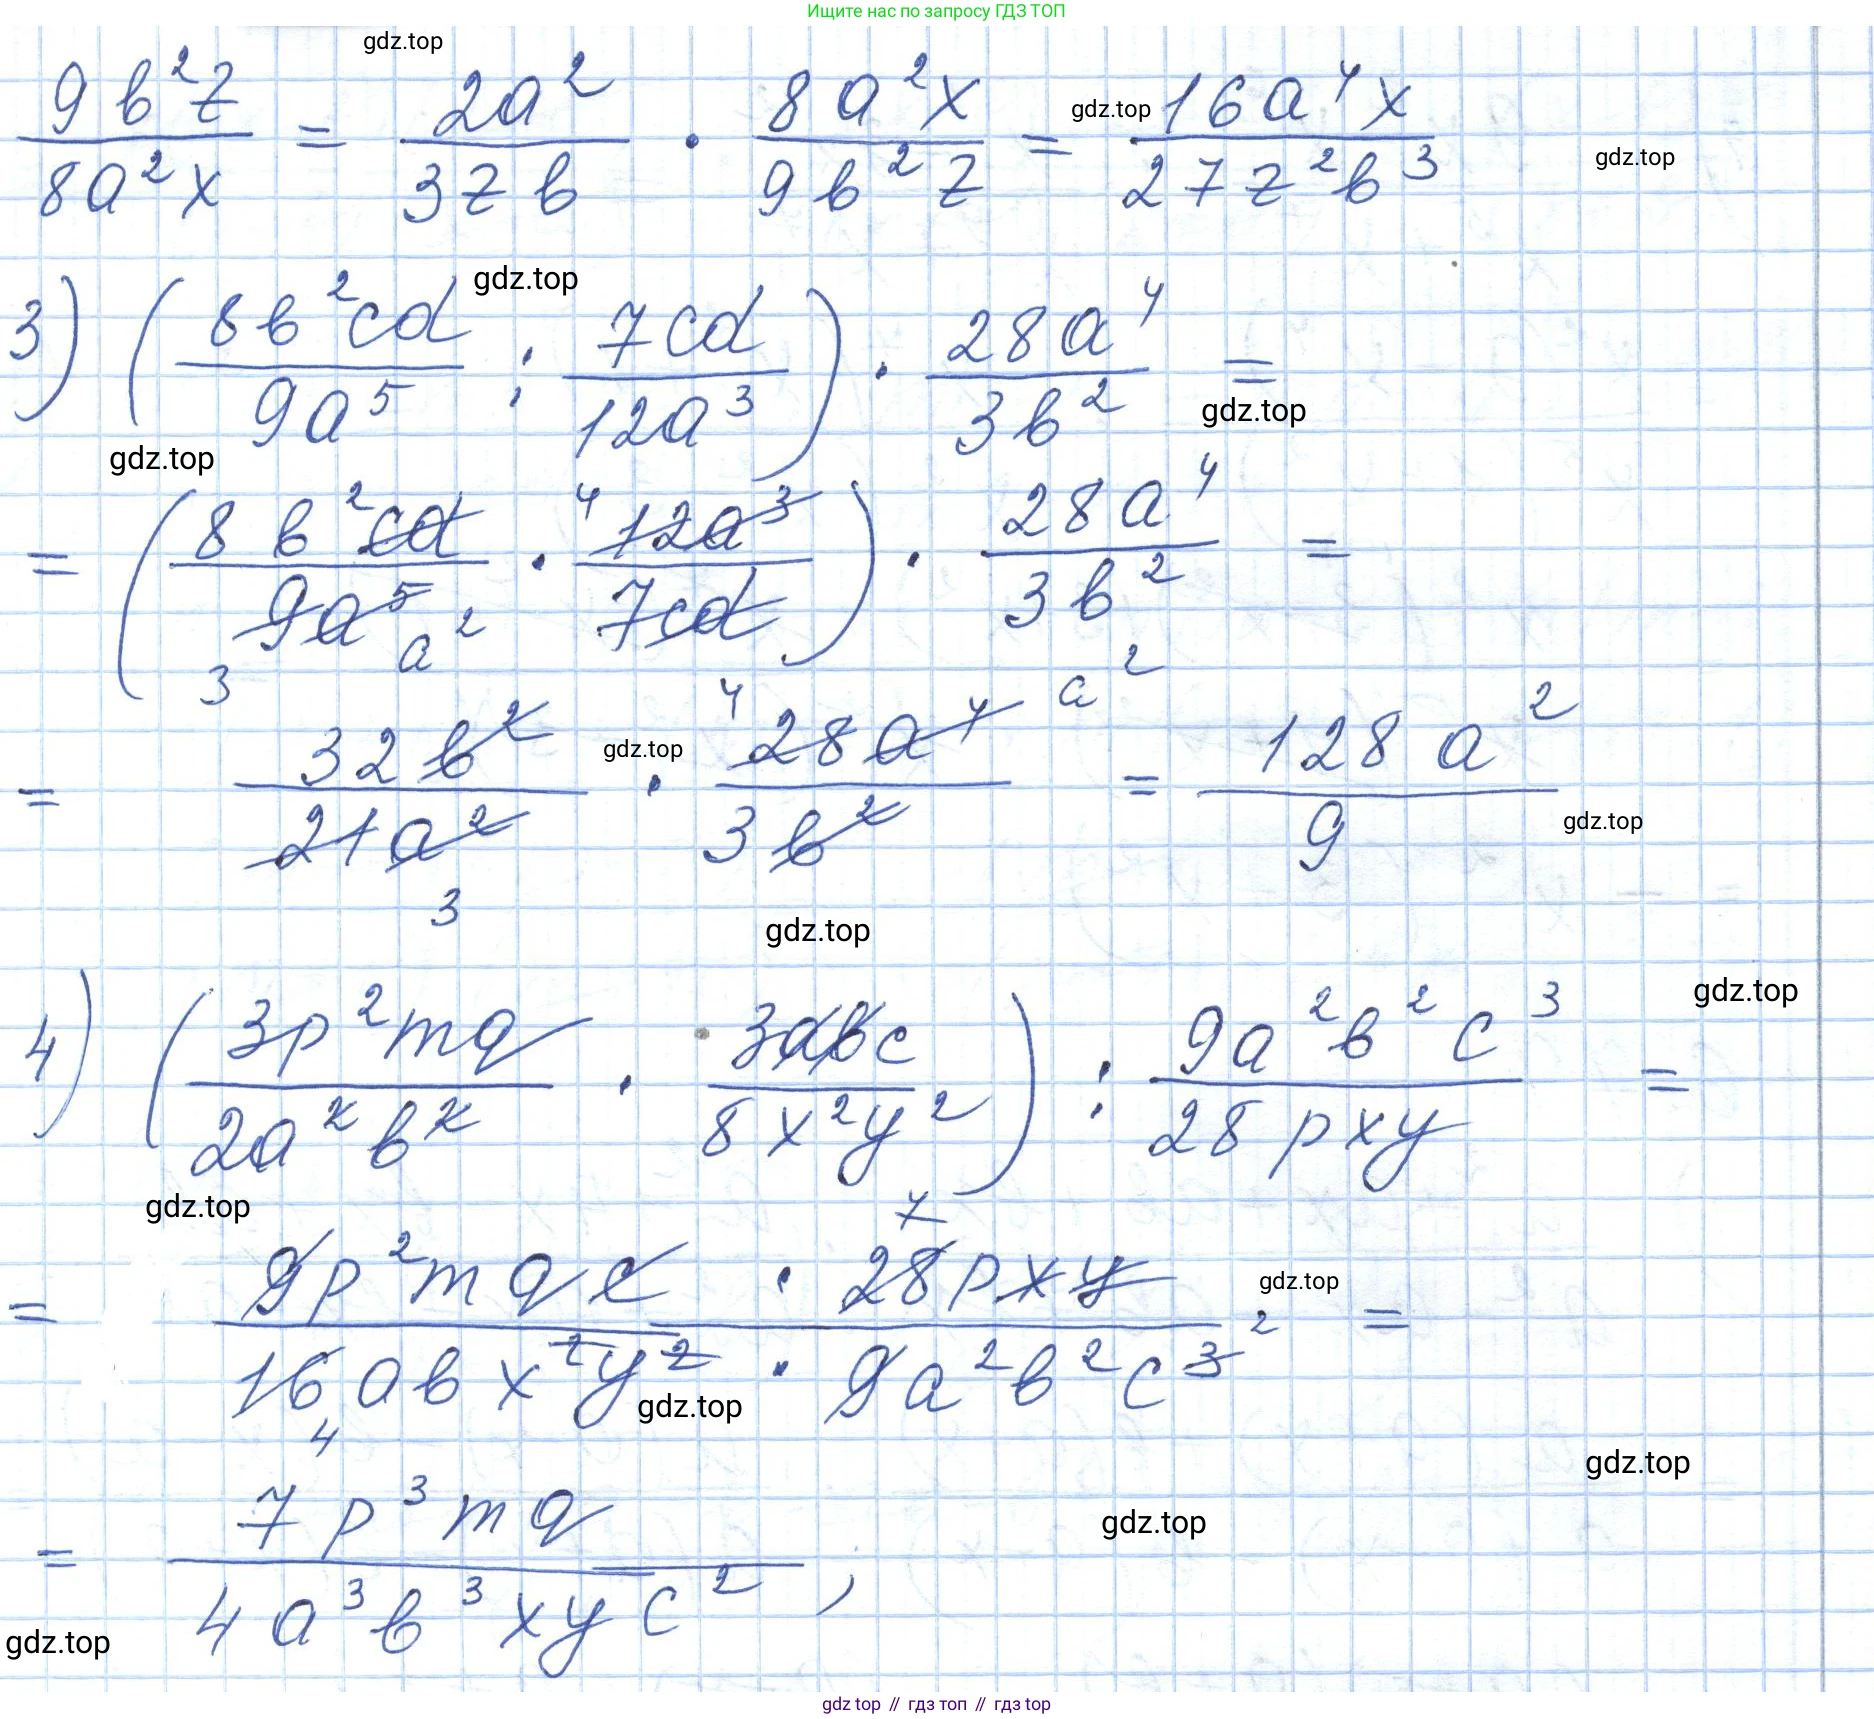 Ищите нас по запросу ГДЗ ТОП
gdz.top
9b²z/8a²x = 2a²/3zb · 8a²x/9b²z = 16a⁴x/27z²b³
gdz.top
gdz.top
3) (8b²cd/9a⁵ : 7cd/12a³) · 28a⁴/3b² =
gdz.top
gdz.top
gdz.top
= (8b²cd/9a⁵ · 12a³/7cd) · 28a⁴/3b² =
4
3 a²
= 32b²/21a² · 28a⁴/3b² = 128a²/9
4 a²
3
gdz.top
gdz.top
gdz.top
4) (3p²mq/2a²b² · 3abc/8x²y²) : 9a²b²c³/28pxy =
gdz.top
gdz.top
= 9p²mqc · 28pxy/16abx²y² · 9a²b²c³ =
7
4 2
gdz.top
gdz.top
= 7p³mq/4a³b³xyc² ,
gdz.top
gdz.top
gdz.top
gdz top // гдз топ // гдз top